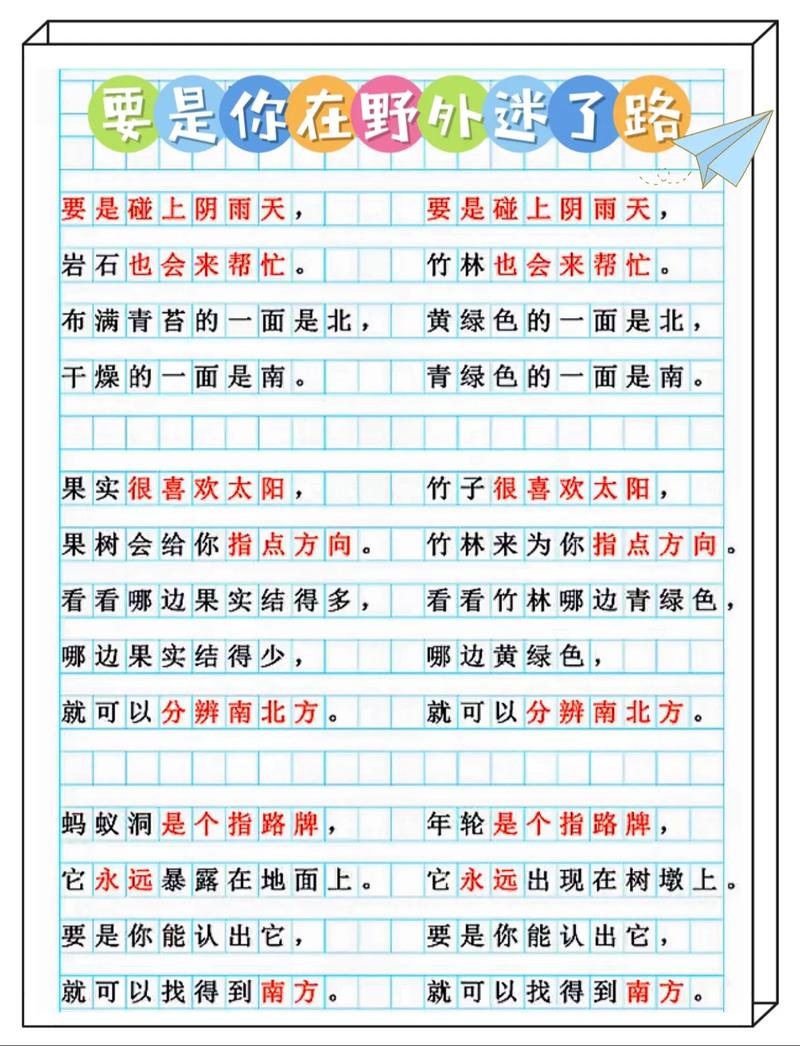 要是你在野外迷了路
要是碰上阴雨天，
岩石也会来帮忙。
布满青苔的一面是北，
干燥的一面是南。
果实很喜欢太阳，
果树会给你指点方向。
看看哪边果实结得多，
哪边果实结得少，
就可以分辨南北方。
蚂蚁洞是个指路牌，
它永远暴露在地面上。
要是你能认出它，
就可以找得到南方。
要是碰上阴雨天，
竹林也会来帮忙。
黄绿色的一面是北，
青绿色的一面是南。
竹子很喜欢太阳，
竹林来为你指点方向。
看看竹林哪边青绿色，
哪边黄绿色，
就可以分辨南北方。
年轮是个指路牌，
它永远出现在树墩上。
要是你能认出它，
就可以找得到南方。